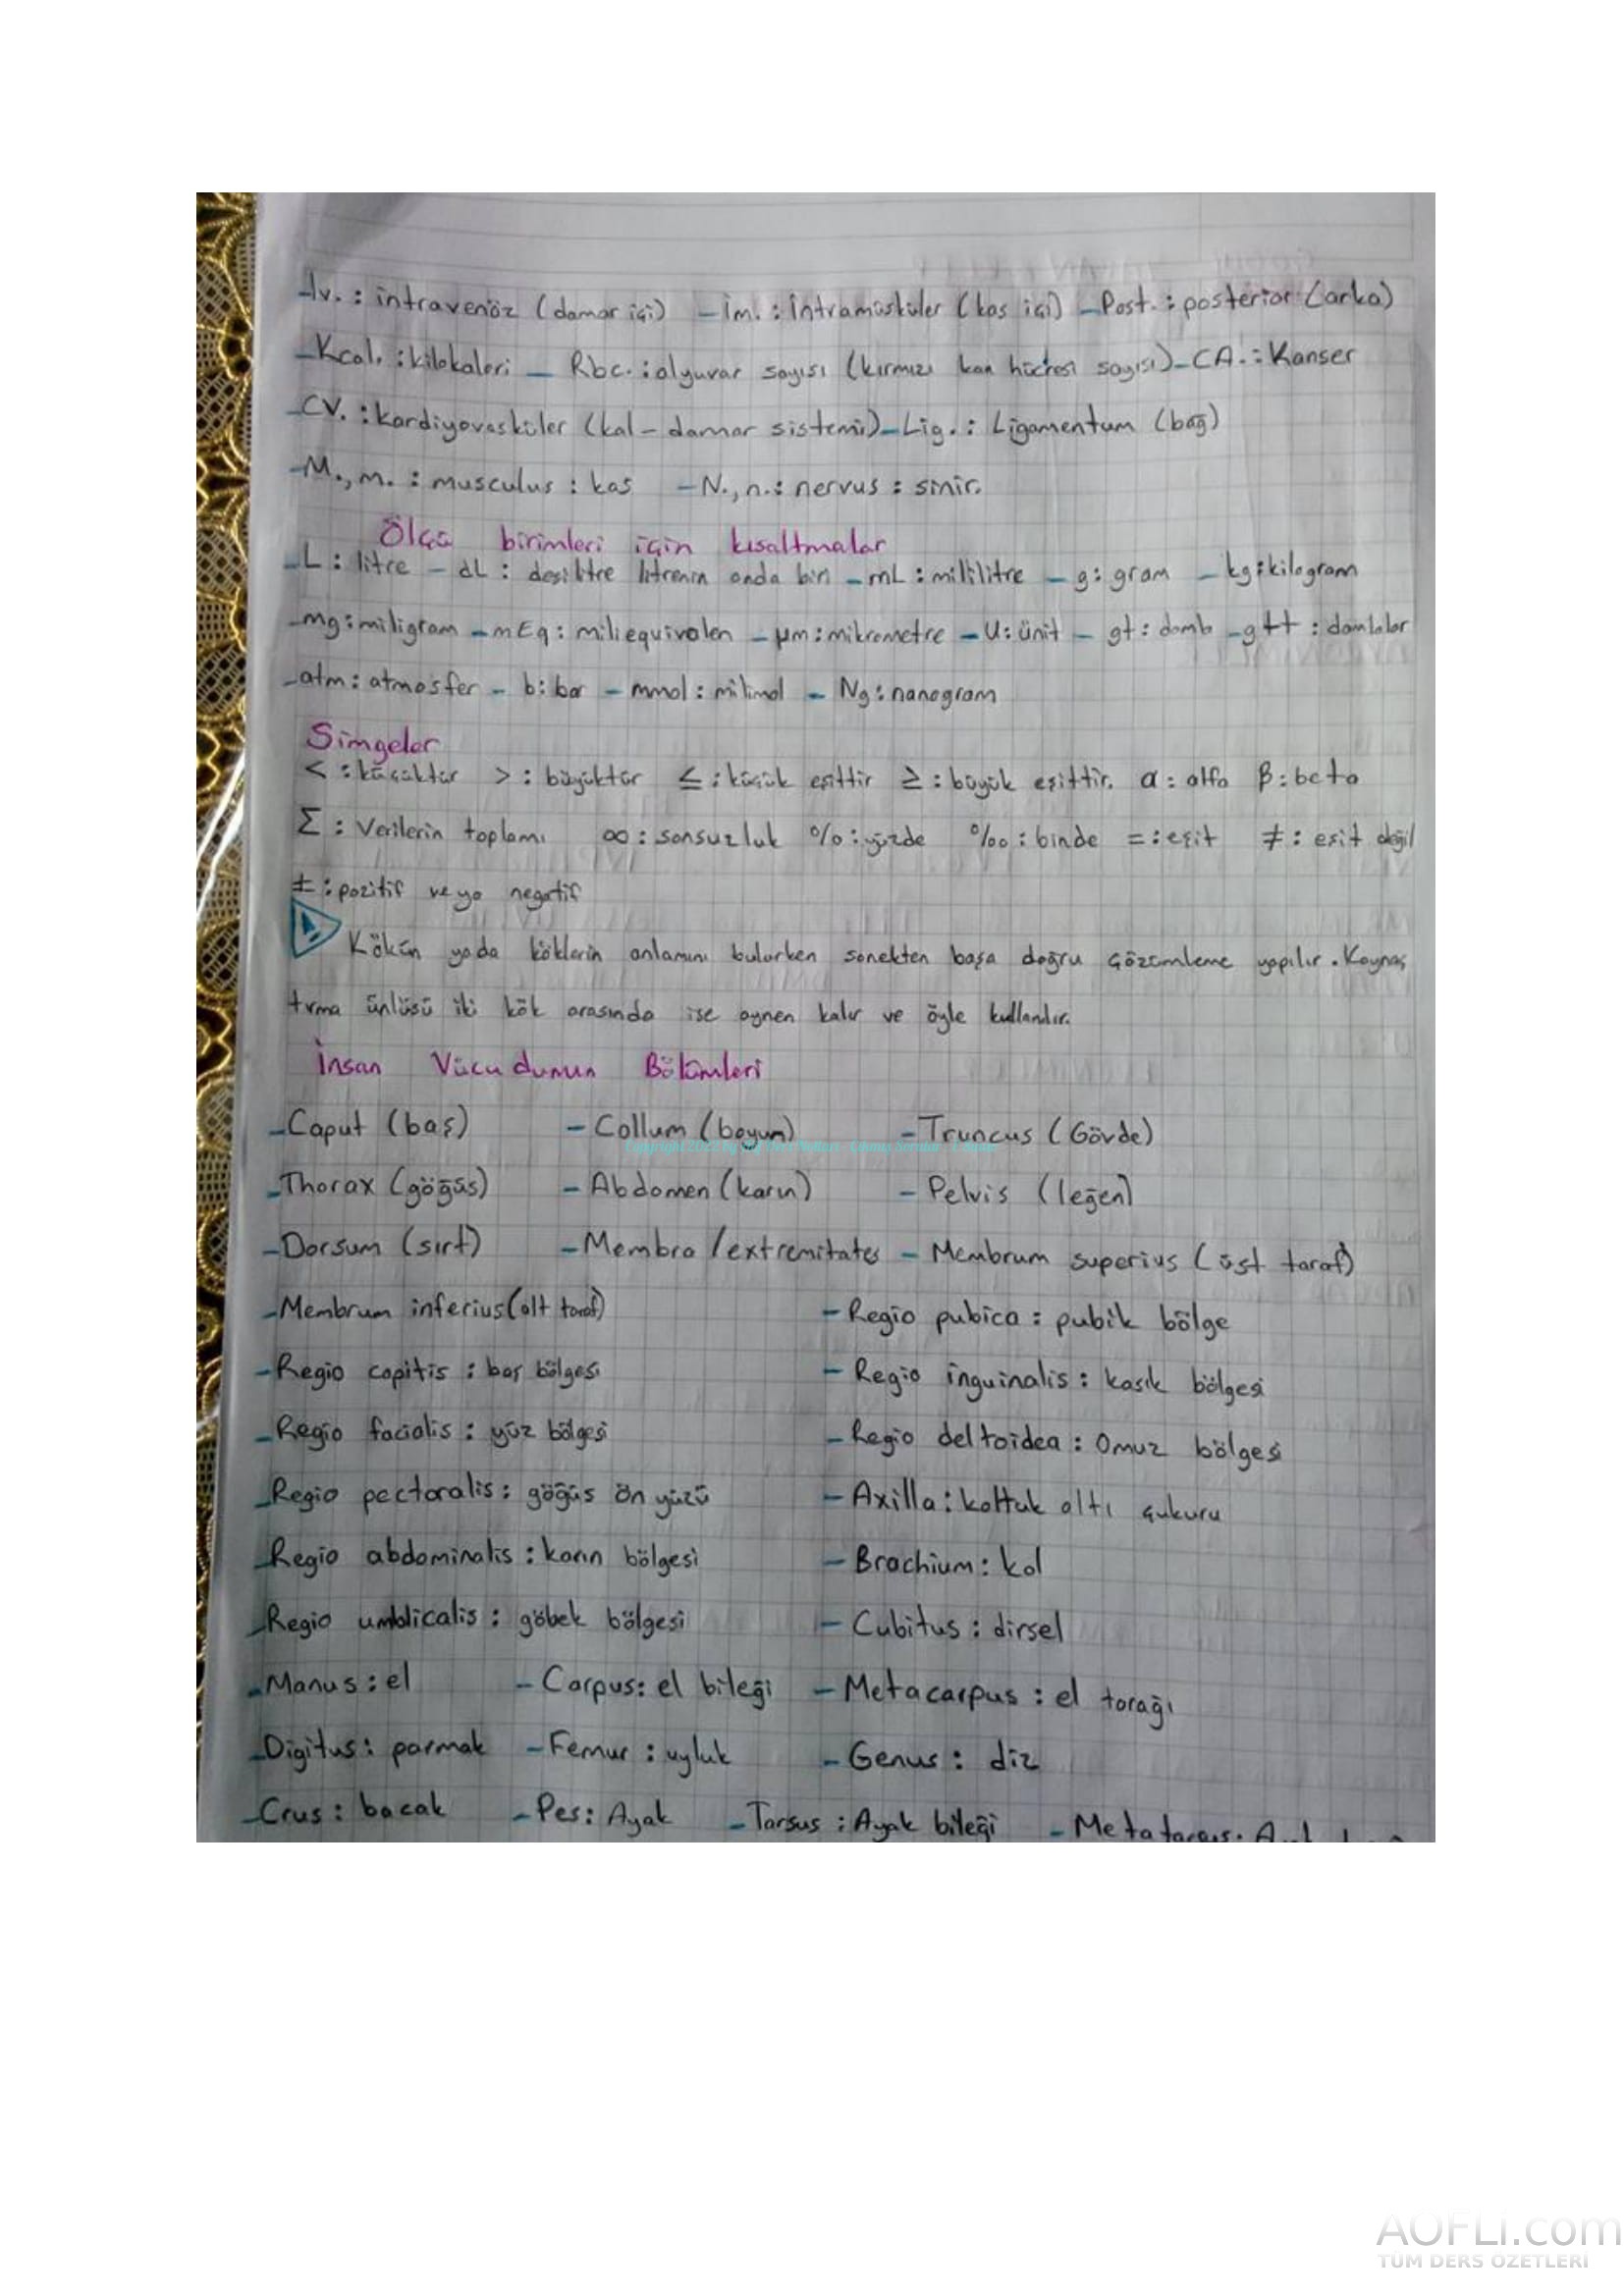 -Iv. : intravenöz (damar içi) - İm. : İntramüsküler (kas içi) - Post. : posterior (arka)
-Kcal. : kilokalori - Rbc. : alyuvar sayısı (kırmızı kan hücresi sayısı) - CA. : Kanser
-CV. : kardiyovasküler (kal - damar sistemi) - Lig. : Ligamentum (bağ)
-M., m. : musculus : kas - N., n. : nervus : sinir.
Ölçü birimleri için kısaltmalar
-L : litre - dL : desilitre litrenin onda biri - mL : millilitre - g : gram - kg : kilogram
-mg : miligram - mEq : miliequivalen - µm : mikrometre - U : ünit - gt : damla - gtt : damlalar
-atm : atmosfer - b : bar - mmol : milimol - Ng : nanogram
Simgeler
< : küçüktür > : büyüktür ≤ : küçük eşittir ≥ : büyük eşittir. α : alfa β : beta
Σ : Verilerin toplamı ∞ : sonsuzluk % : yüzde ‰ : binde = : eşit ≠ : eşit değil
± : pozitif veya negatif
Kökün yada köklerin anlamını bulurken sonekten başa doğru çözümleme yapılır. Kaynaş
tırma ünlüsü iki kök arasında ise aynen kalır ve öyle kullanılır.
İnsan Vücudunun Bölümleri
-Caput (baş) - Collum (boyun) - Truncus (Gövde)
-Thorax (göğüs) - Abdomen (karın) - Pelvis (leğen)
-Dorsum (sırt) - Membra / extremitates - Membrum superius (üst taraf)
-Membrum inferius (alt taraf) - Regio pubica : pubik bölge
-Regio capitis : baş bölgesi - Regio inguinalis : kasık bölgesi
-Regio facialis : yüz bölgesi - Regio deltoidea : Omuz bölgesi
-Regio pectoralis : göğüs ön yüzü - Axilla : koltuk altı çukuru
-Regio abdominalis : karın bölgesi - Brachium : kol
-Regio umblicalis : göbek bölgesi - Cubitus : dirsel
-Manus : el - Carpus : el bileği - Metacarpus : el tarağı
-Digitus : parmak - Femur : uyluk - Genus : diz
-Crus : bacak - Pes : Ayak - Tarsus : Ayak bileği - Metatarsus :
AOFLİ.com
TÜM DERS ÖZETLERİ